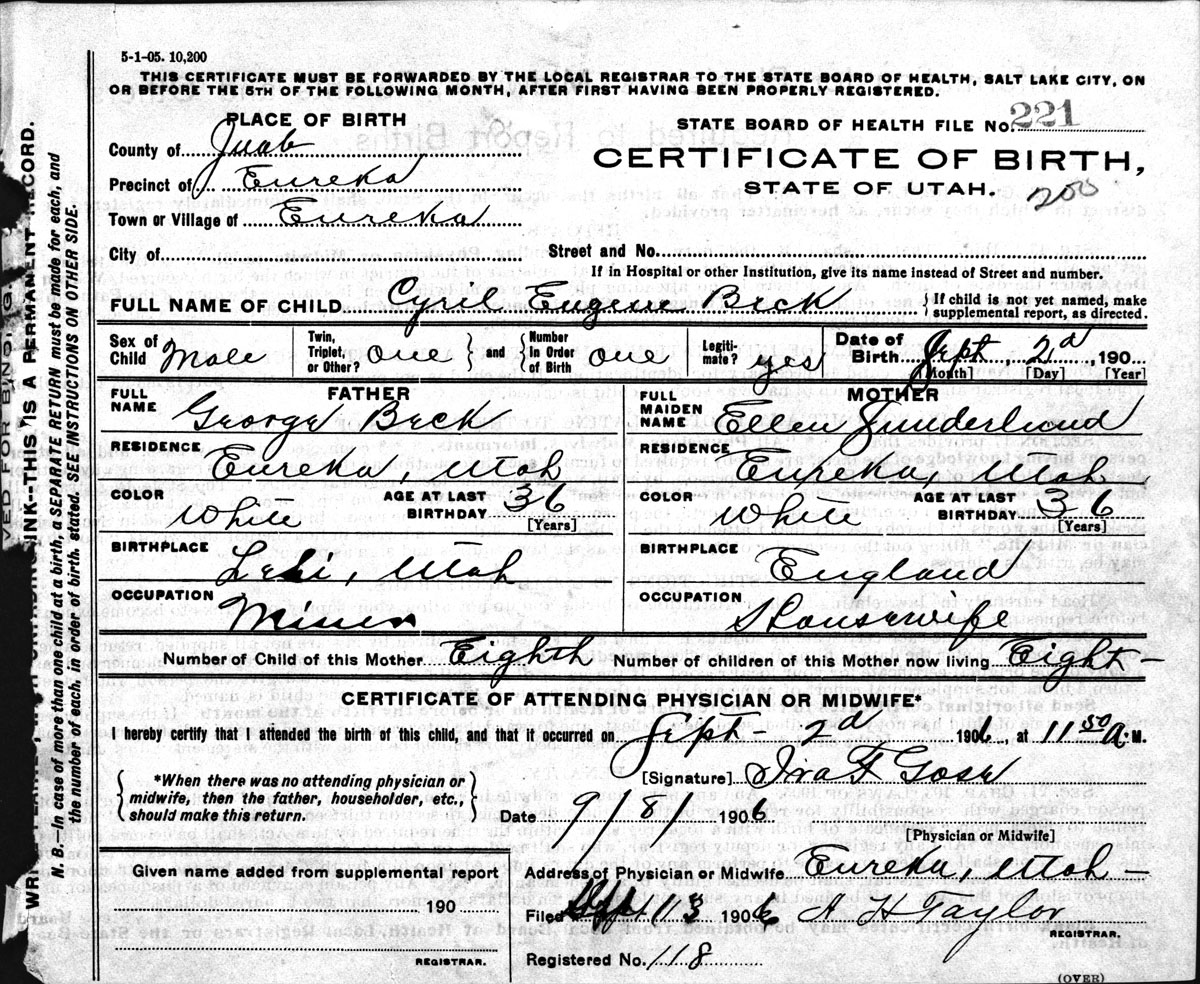 5-1-05. 10,200
THIS CERTIFICATE MUST BE FORWARDED BY THE LOCAL REGISTRAR TO THE STATE BOARD OF HEALTH, SALT LAKE CITY, ON
OR BEFORE THE 5TH OF THE FOLLOWING MONTH, AFTER FIRST HAVING BEEN PROPERLY REGISTERED.
PLACE OF BIRTH
County of Juab
Precinct of Eureka
Town or Village of Eureka
City of
STATE BOARD OF HEALTH FILE No. 221
CERTIFICATE OF BIRTH,
STATE OF UTAH.
200
Street and No.
If in Hospital or other Institution, give its name instead of Street and number.
FULL NAME OF CHILD Cyril Eugene Beck { If child is not yet named, make
supplemental report, as directed.
Sex of Child Male
Twin, Triplet, or Other? one } and { Number in Order of Birth one
Legitimate? yes
Date of Birth Sept 2d, 190
[Month] [Day] [Year]
FATHER
FULL NAME George Beck
RESIDENCE Eureka, Utah
COLOR White AGE AT LAST BIRTHDAY 36
[Years]
BIRTHPLACE Lehi, Utah
OCCUPATION Miner
MOTHER
FULL MAIDEN NAME Ellen Sunderlund
RESIDENCE Eureka, Utah
COLOR White AGE AT LAST BIRTHDAY 36
[Years]
BIRTHPLACE England
OCCUPATION Housewife
Number of Child of this Mother Eighth Number of children of this Mother now living Eight -
CERTIFICATE OF ATTENDING PHYSICIAN OR MIDWIFE*
I hereby certify that I attended the birth of this child, and that it occurred on Sept - 2d 1906, at 11 50 A. M.
{ *When there was no attending physician or
midwife, then the father, householder, etc.,
should make this return. }
[Signature]
Date 9/8/ 1906
[Physician or Midwife]
Given name added from supplemental report
190
REGISTRAR.
Address of Physician or Midwife Eureka, Utah -
Filed Sept 13 1906 A H Taylor
REGISTRAR.
Registered No. 118
(OVER)
N. B. In case of more than one child at a birth, a SEPARATE RETURN must be made for each, and
the number of each, in order of birth, stated. SEE INSTRUCTIONS ON OTHER SIDE.
INK--THIS IS A PERMANENT RECORD.